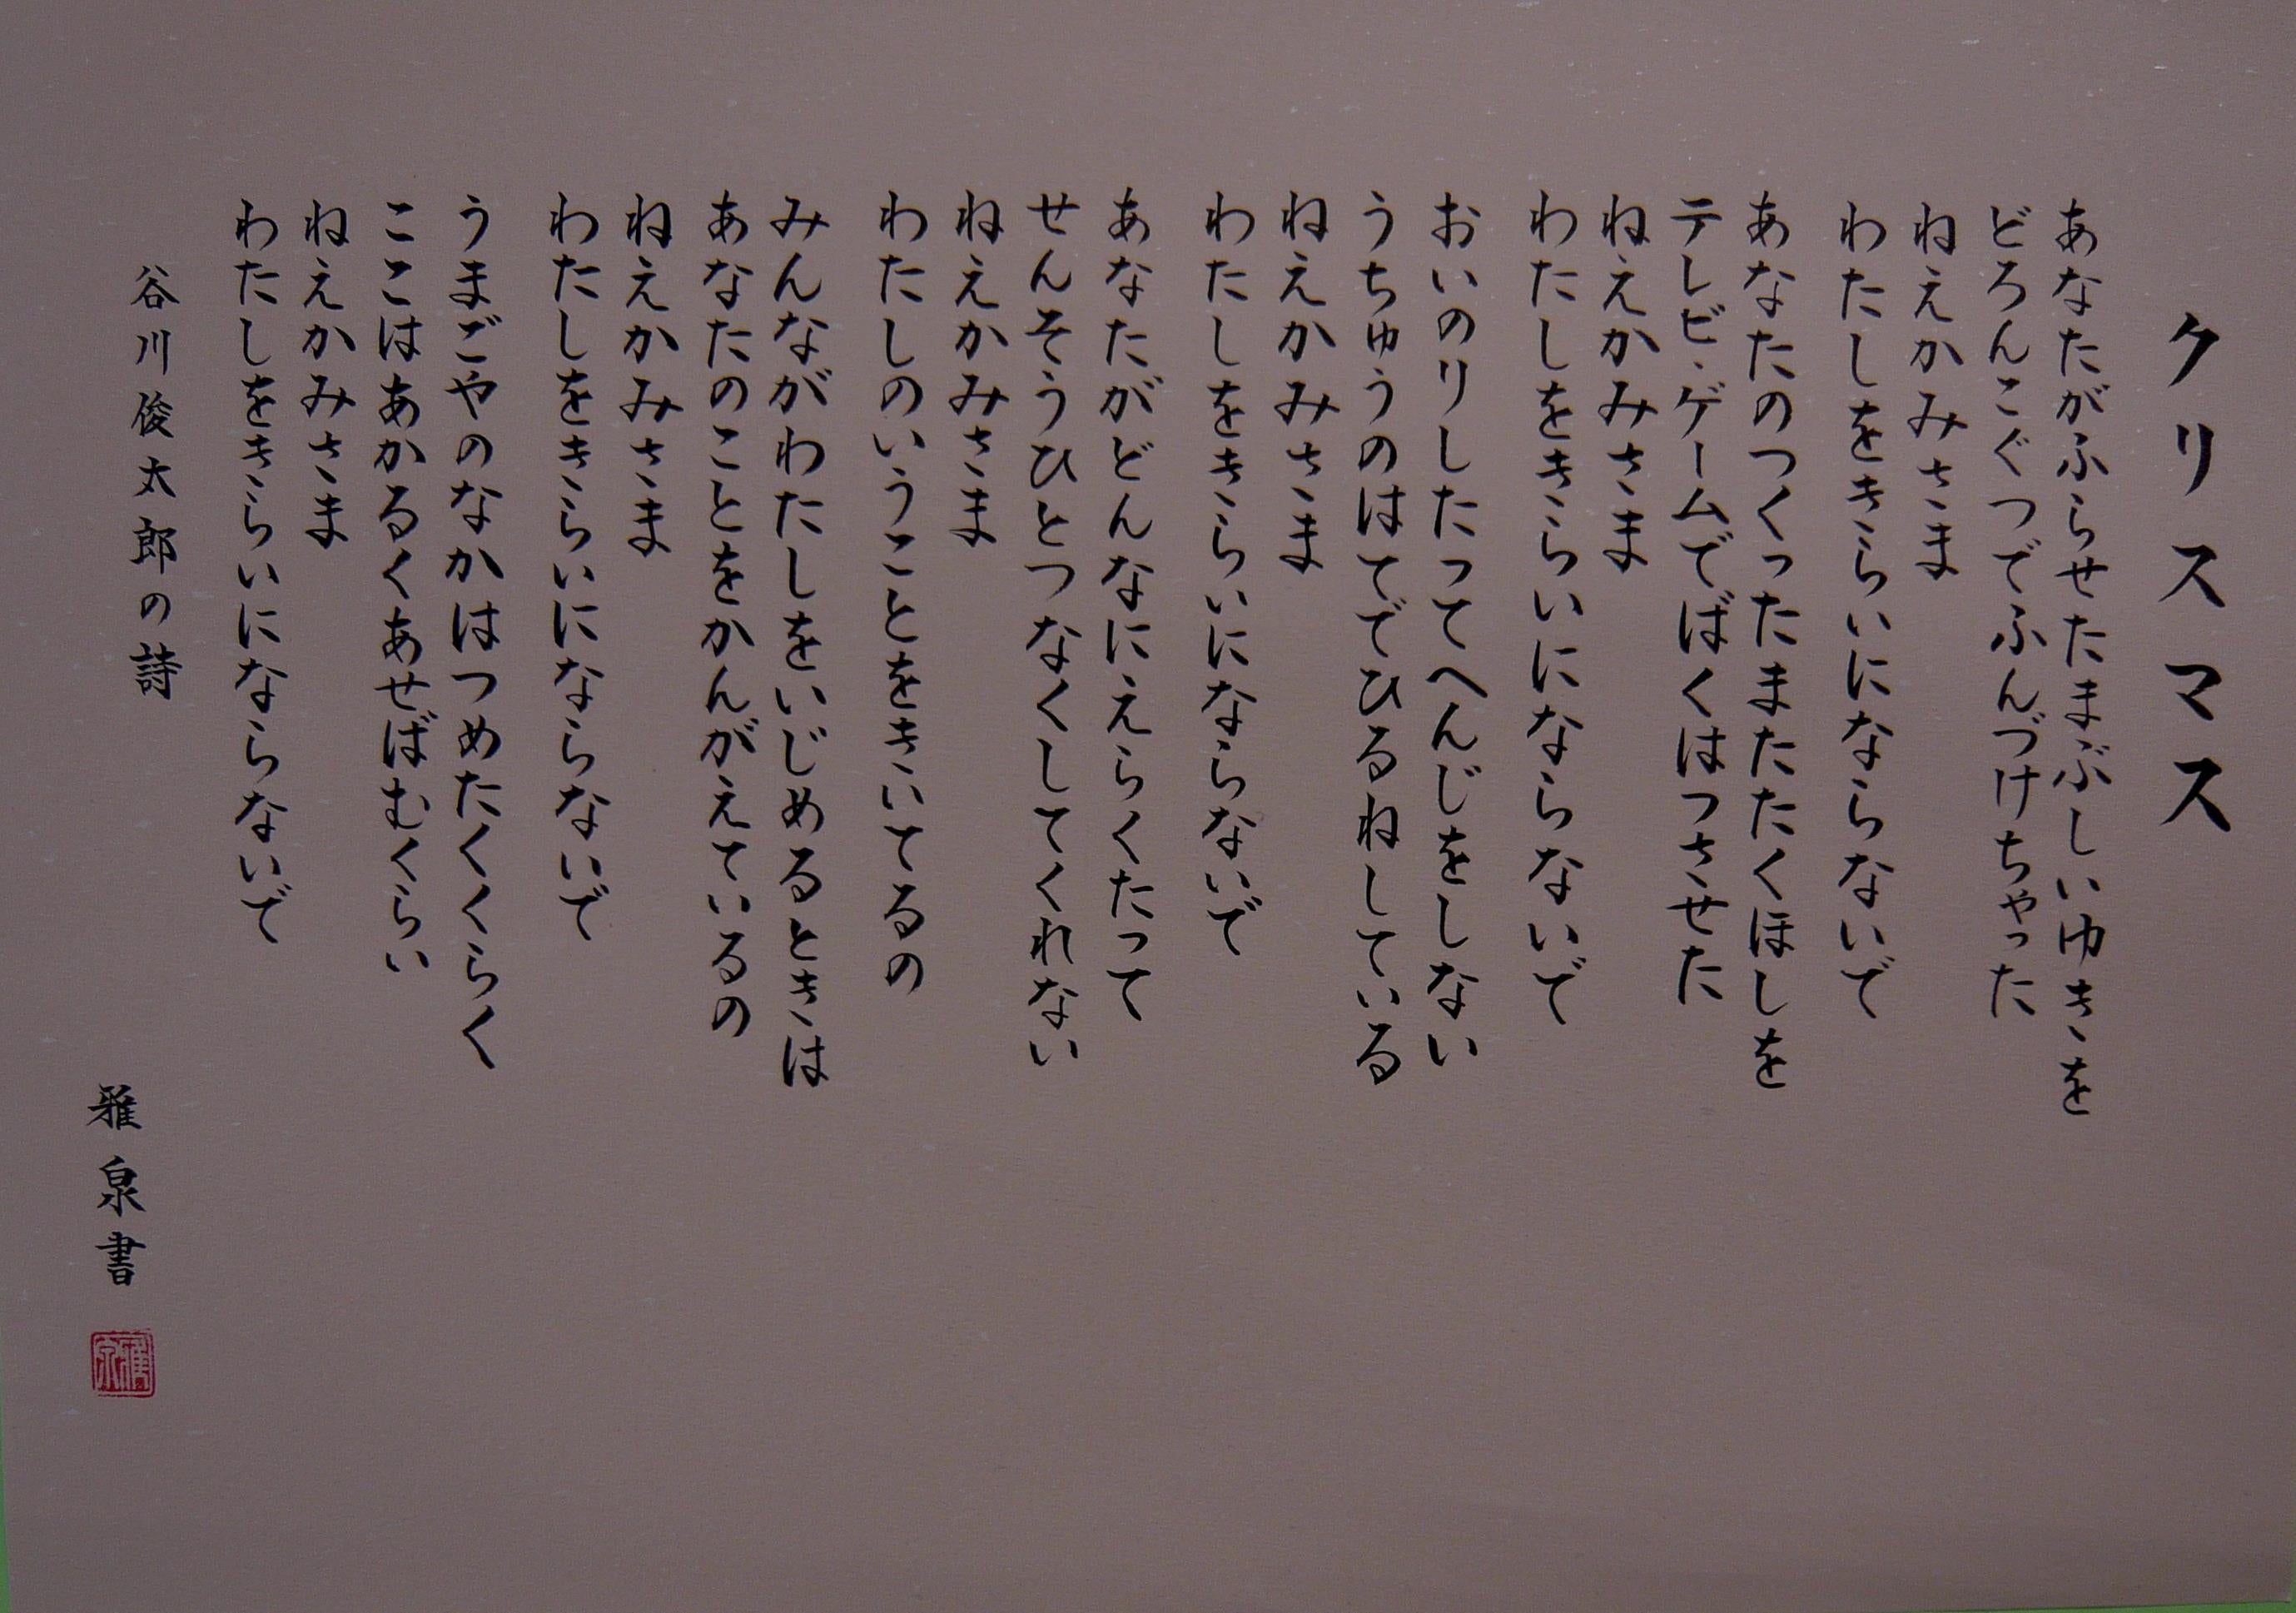 クリスマス
あなたがふらせたまぶしいゆきを
どろんこぐつでふんづけちゃった
ねえかみさま
わたしをきらいにならないで
あなたのつくったまたたくほしを
テレビ・ゲームでばくはつさせた
ねえかみさま
わたしをきらいにならないで
おいのりしたってへんじをしない
うちゅうのはてでひるねしている
ねえかみさま
わたしをきらいにならないで
あなたがどんなにえらくたって
せんそうひとつなくしてくれない
ねえかみさま
わたしのいうことをきいてるの
みんながわたしをいじめるときは
あなたのことをかんがえているの
ねえかみさま
わたしをきらいにならないで
うまごやのなかはつめたくくらく
ここはあかるくあせばむくらい
ねえかみさま
わたしをきらいにならないで
谷川俊太郎の詩
雅泉書
雅泉